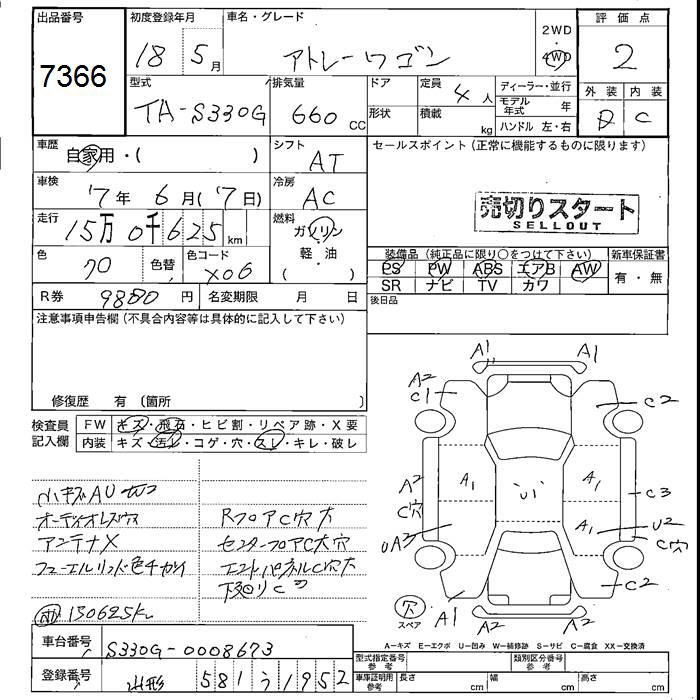 出品番号 初度登録年月 車名・グレード 2WD 評価点
7366 18年 5月 アトレーワゴン 4WD 2
型式 排気量 ドア 定員 4人 ディーラー・並行 外装 内装
TA-S330G 660 CC 形状 積載 kg モデル年式 年 D C
ハンドル 左・右
車歴 自家用・( ) シフト AT セールスポイント(正常に機能するものに限ります)
車検 17年 6月(17日) 冷房 AC
売切りスタート
SELLOUT
走行 15万0千625km 燃料 ガソリン
軽・油
( )
色 色替 色コード X06
装備品(純正品に限り○をつけて下さい) 新車保証書
PS PW ABS エアB AW 有・無
SR ナビ TV カワ
R券 円 名変期限 月 日 後日品
注意事項申告欄(不具合内容等は具体的に記入して下さい)
修復歴 有(箇所 )
検査員 FW キズ・飛石・ヒビ割・リペア跡・X要
記入欄 内装 キズ・汚レ・コゲ・穴・スレ・キレ・破レ
A1 A1
A2
C1 C2
A1 A1
A2 U1 C3
C穴
A1 U2
UA3 C穴
C2
穴 A1 A2 A2
スペア
オーディオレス穴 RフロアC穴大
アンテナX センターフロアC大穴
フューエルリッド色チガイ エンドパネルC穴大
下回りC
150625K
A=キズ E=エクボ U=凹み W=補修跡 S=サビ C=腐食 XX=交換済
車台番号 S330G-0008673
型式指定番号 参考 類別区分番号 参考
登録番号 山形 581 う 1952
車庫証明用 参考 長さ cm 幅 cm 高さ cm